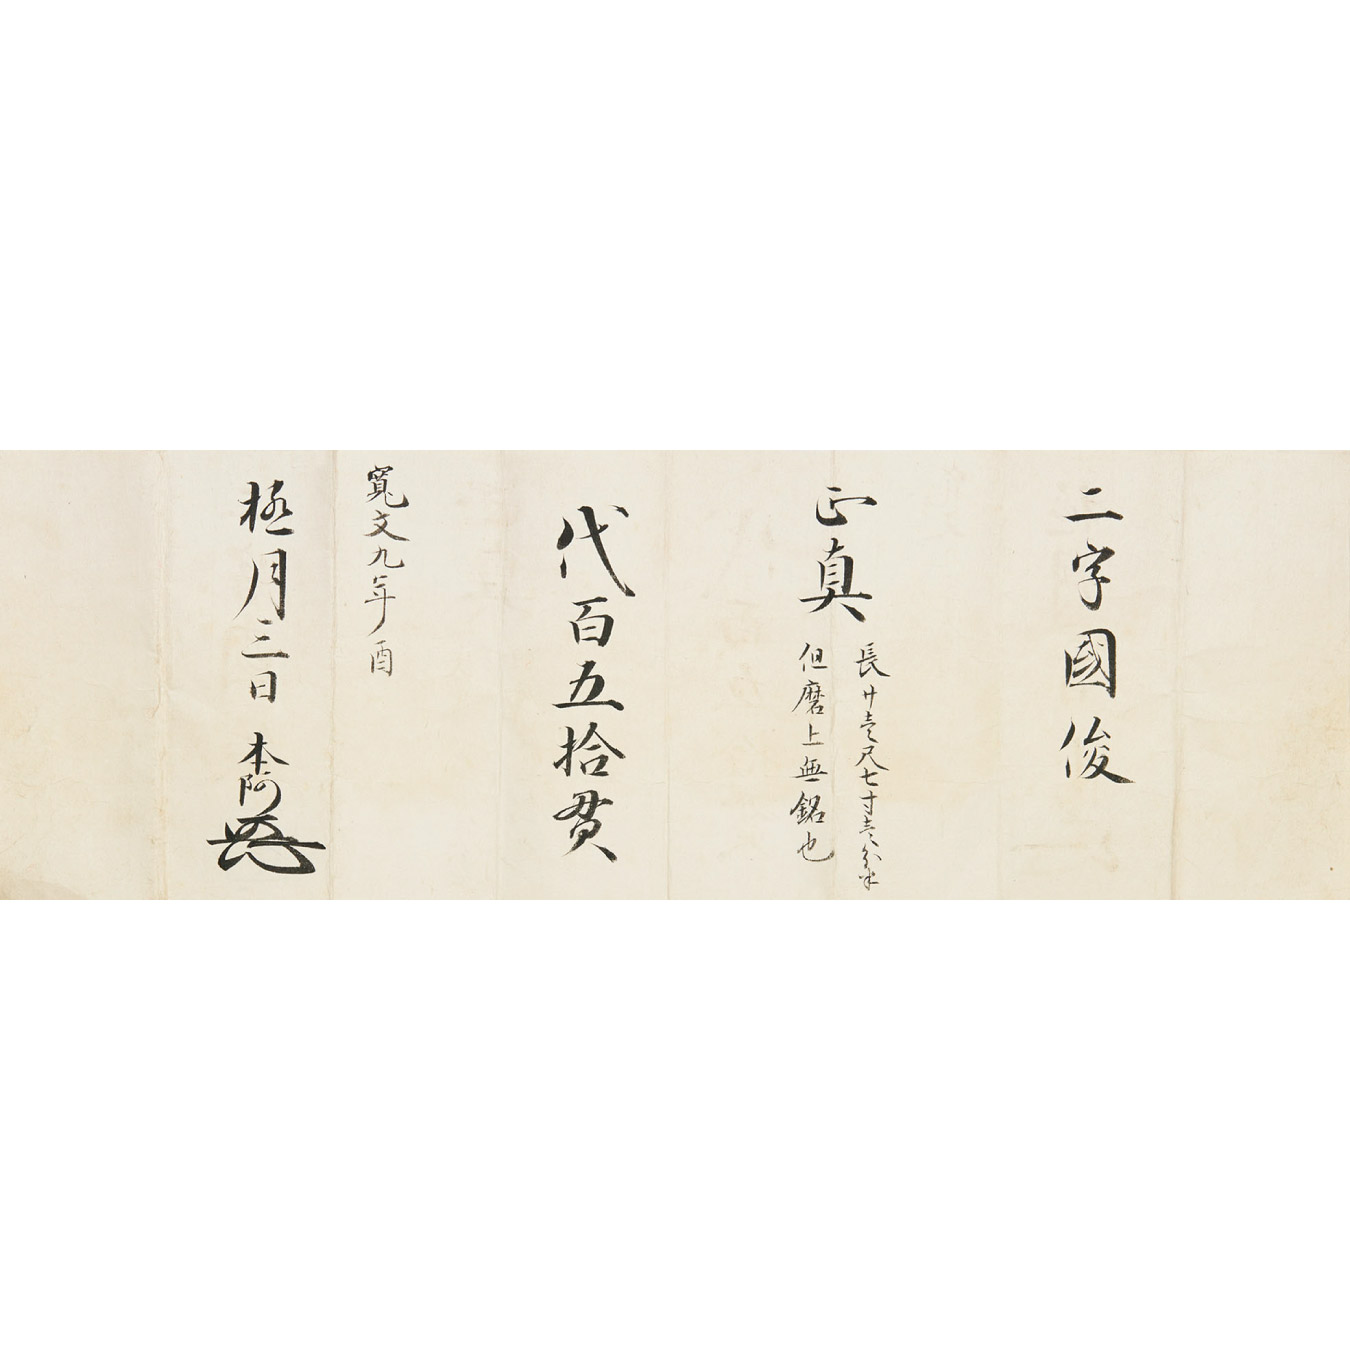 二字國俊
正真
長サ壱尺七寸壱分半
但磨上無銘也
代百五拾貫
寛文九年酉
極月三日 本阿